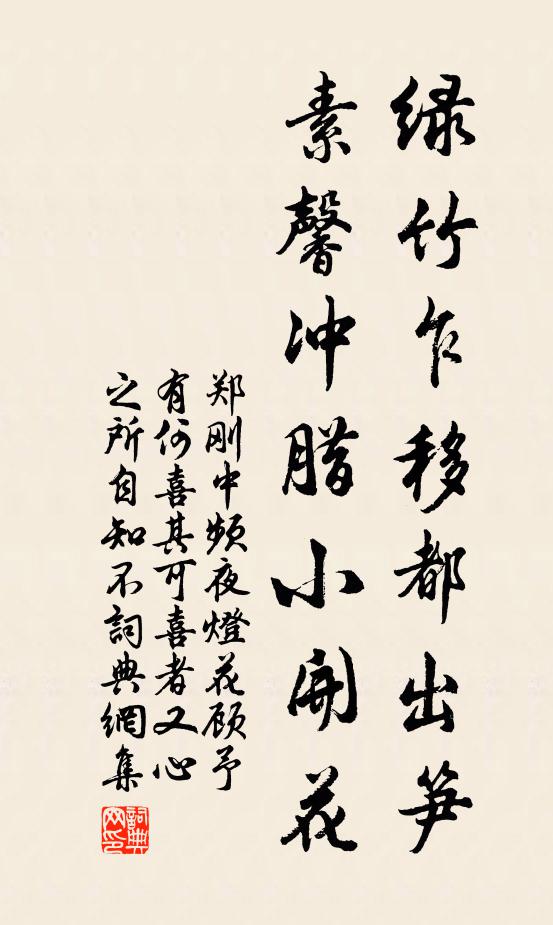 绿竹乍移都出笋
素馨冲腊小开花
郑刚中频夜燈花顾予
有何喜其可喜者又心
之所自知不詞典網集
詞典
网印